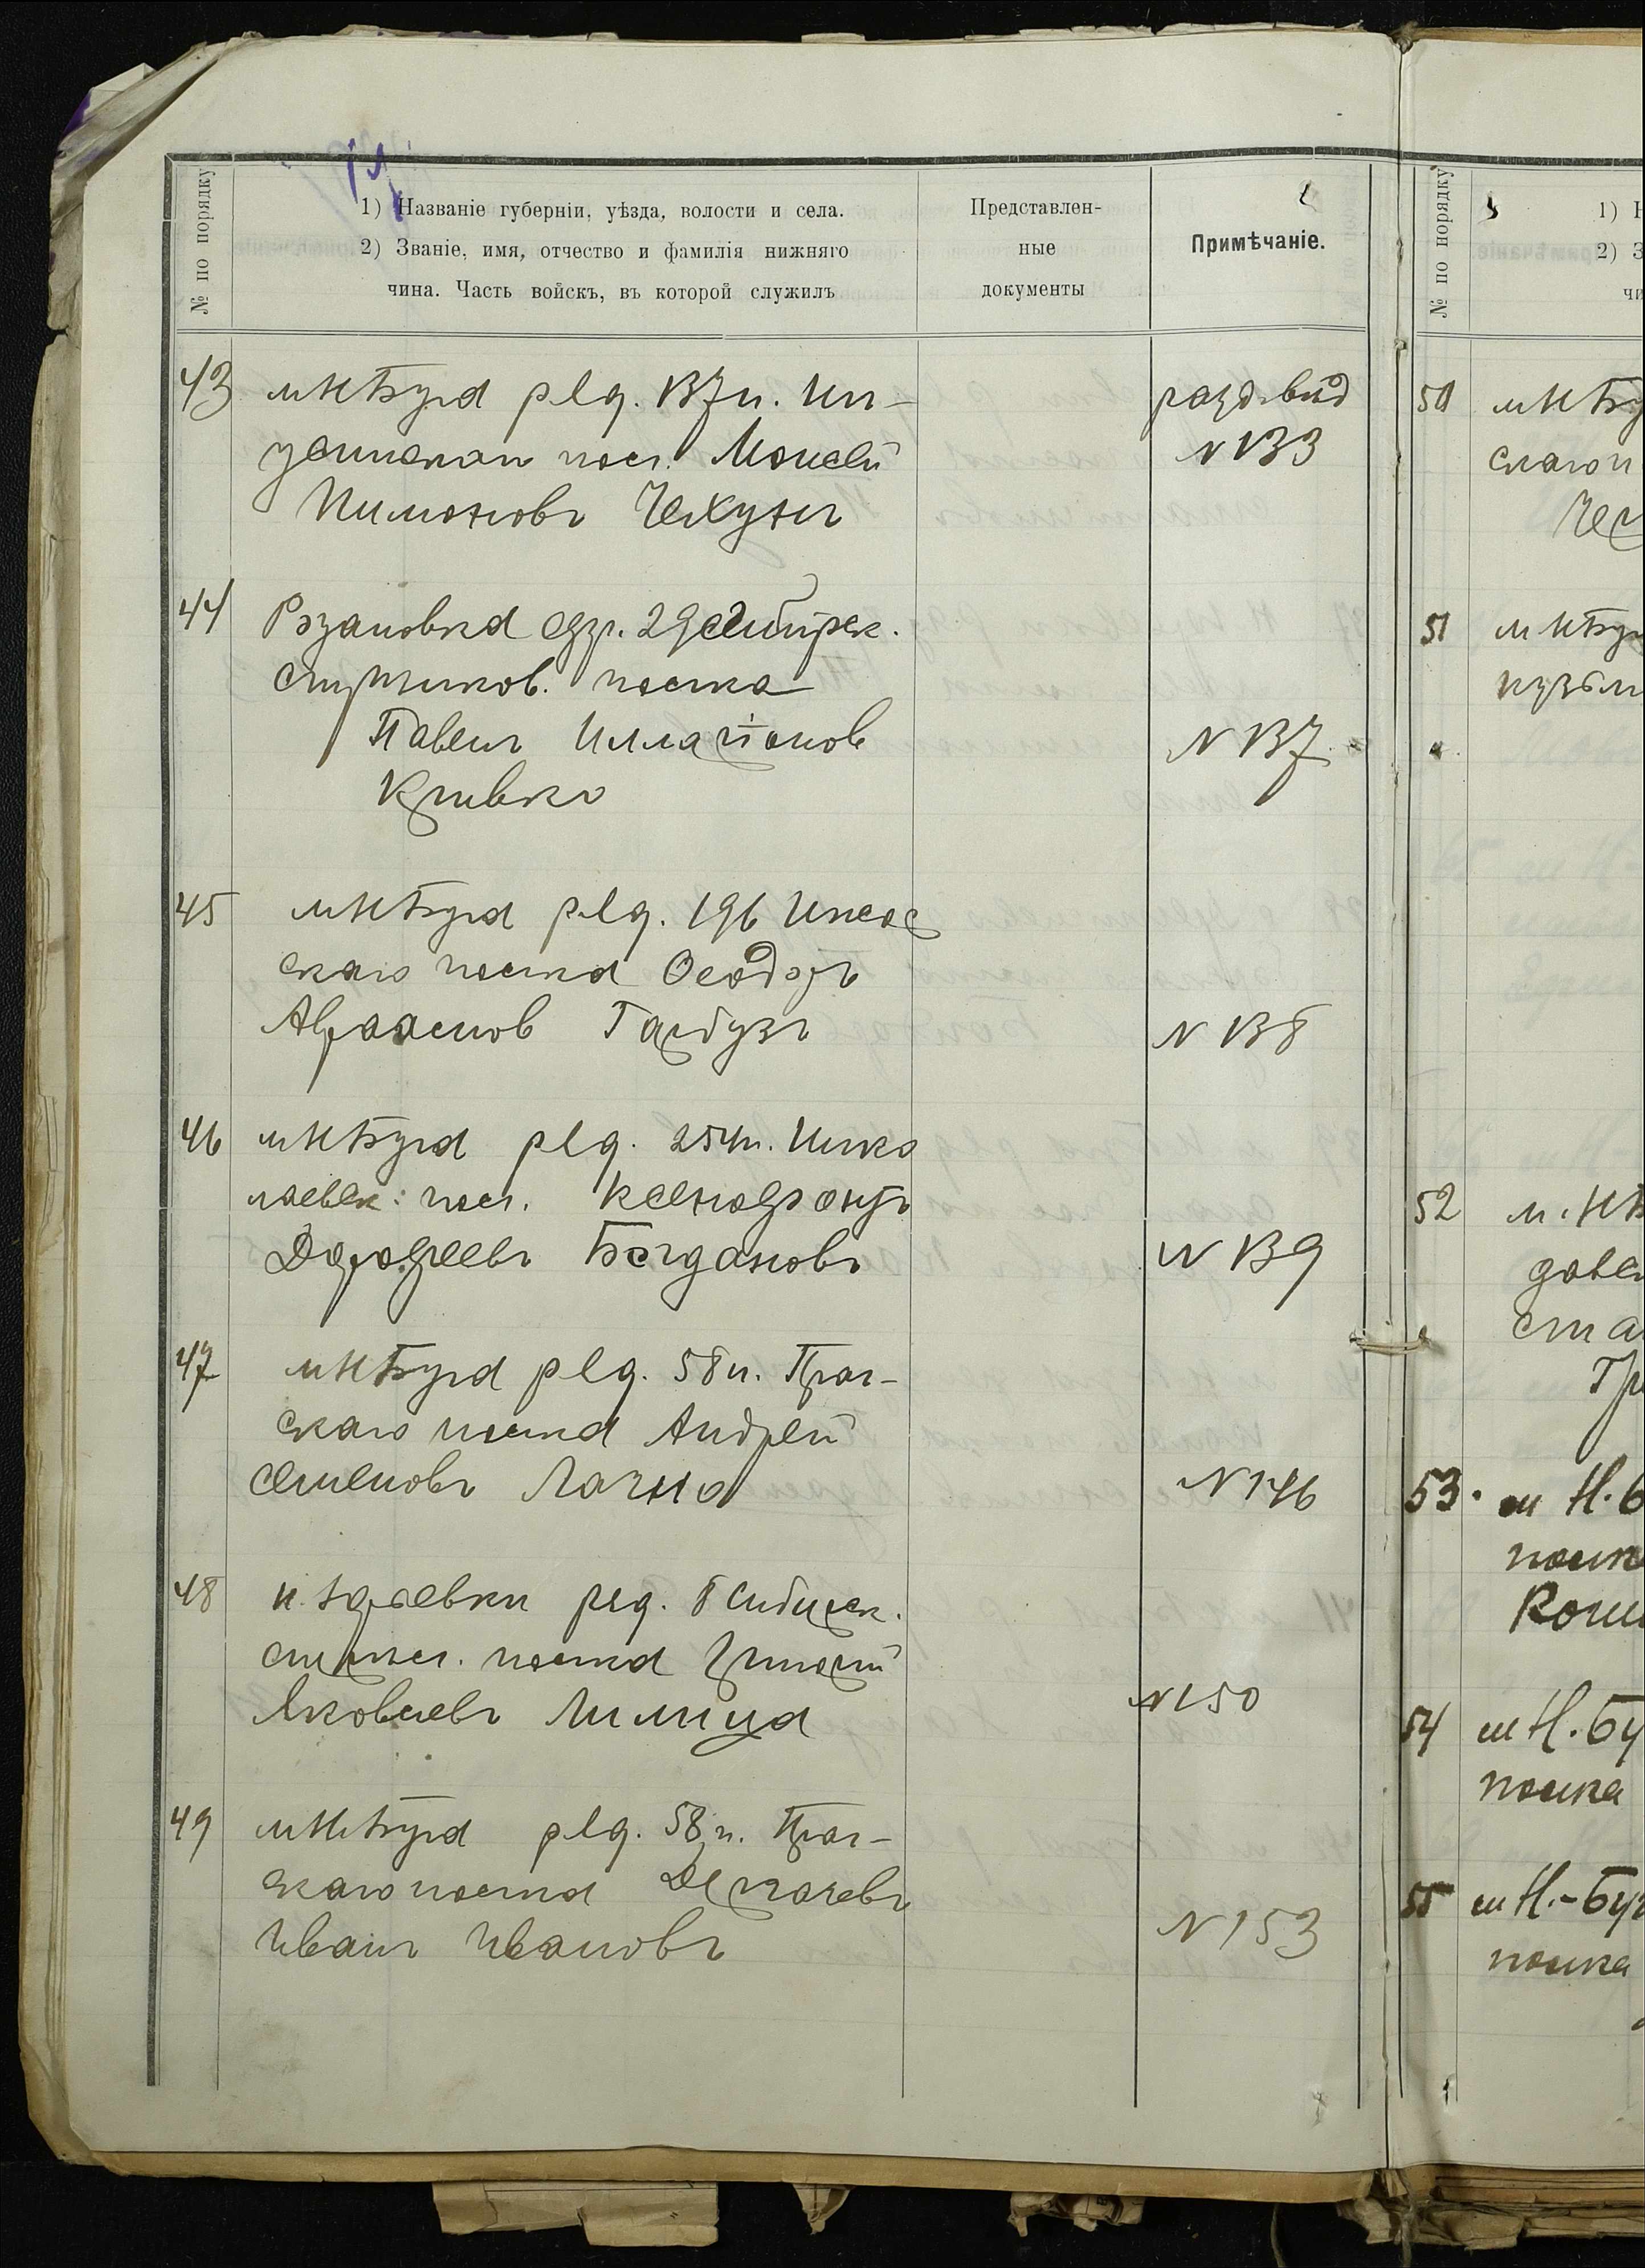 № по порядку
1) Названіе губерніи, уѣзда, волости и села.
2) Званіе, имя, отчество и фамилія нижняго
чина. Часть войскъ, въ которой служилъ
Представлен-
ные
документы
Примѣчаніе.
43 м Н Буга ряд. 137 п.
полк. Моисей
Пимоновъ Чехунъ
N 133
44 Рязановка 29 Сибирск.
стрѣлков. полка
Павелъ Илларіонов
Кривко
N 137
45 м Н Буга ряд. 196 Инсар
скаго полка Ѳеодоръ
Авраамов Гарбузъ
N 138
46 м Н Буга ряд. 254 п. Нико
лаевск: полк. Ксенофонтъ
Дорофеевъ Богдановъ
N 139
47 м Н Буга ряд. 58 п. Праг-
скаго полка Андрей
Семеновъ
N 146
48 ряд. 8 Сибирск.
стрѣлк. полка Григорій
Яковлевъ
N 150
49 м Н. Буга ряд. 58 п. Праг-
скаго полка
Иванъ Ивановъ
N 153
№ по порядку
1) Н
2) З
чи
50 м Н Бу
скаго п
51 м Н Буг
52 м. Н Б
ста
Гр
53. м Н. Б
полк
54 м Н. Бу
полка
55 м Н.-Буг
полка